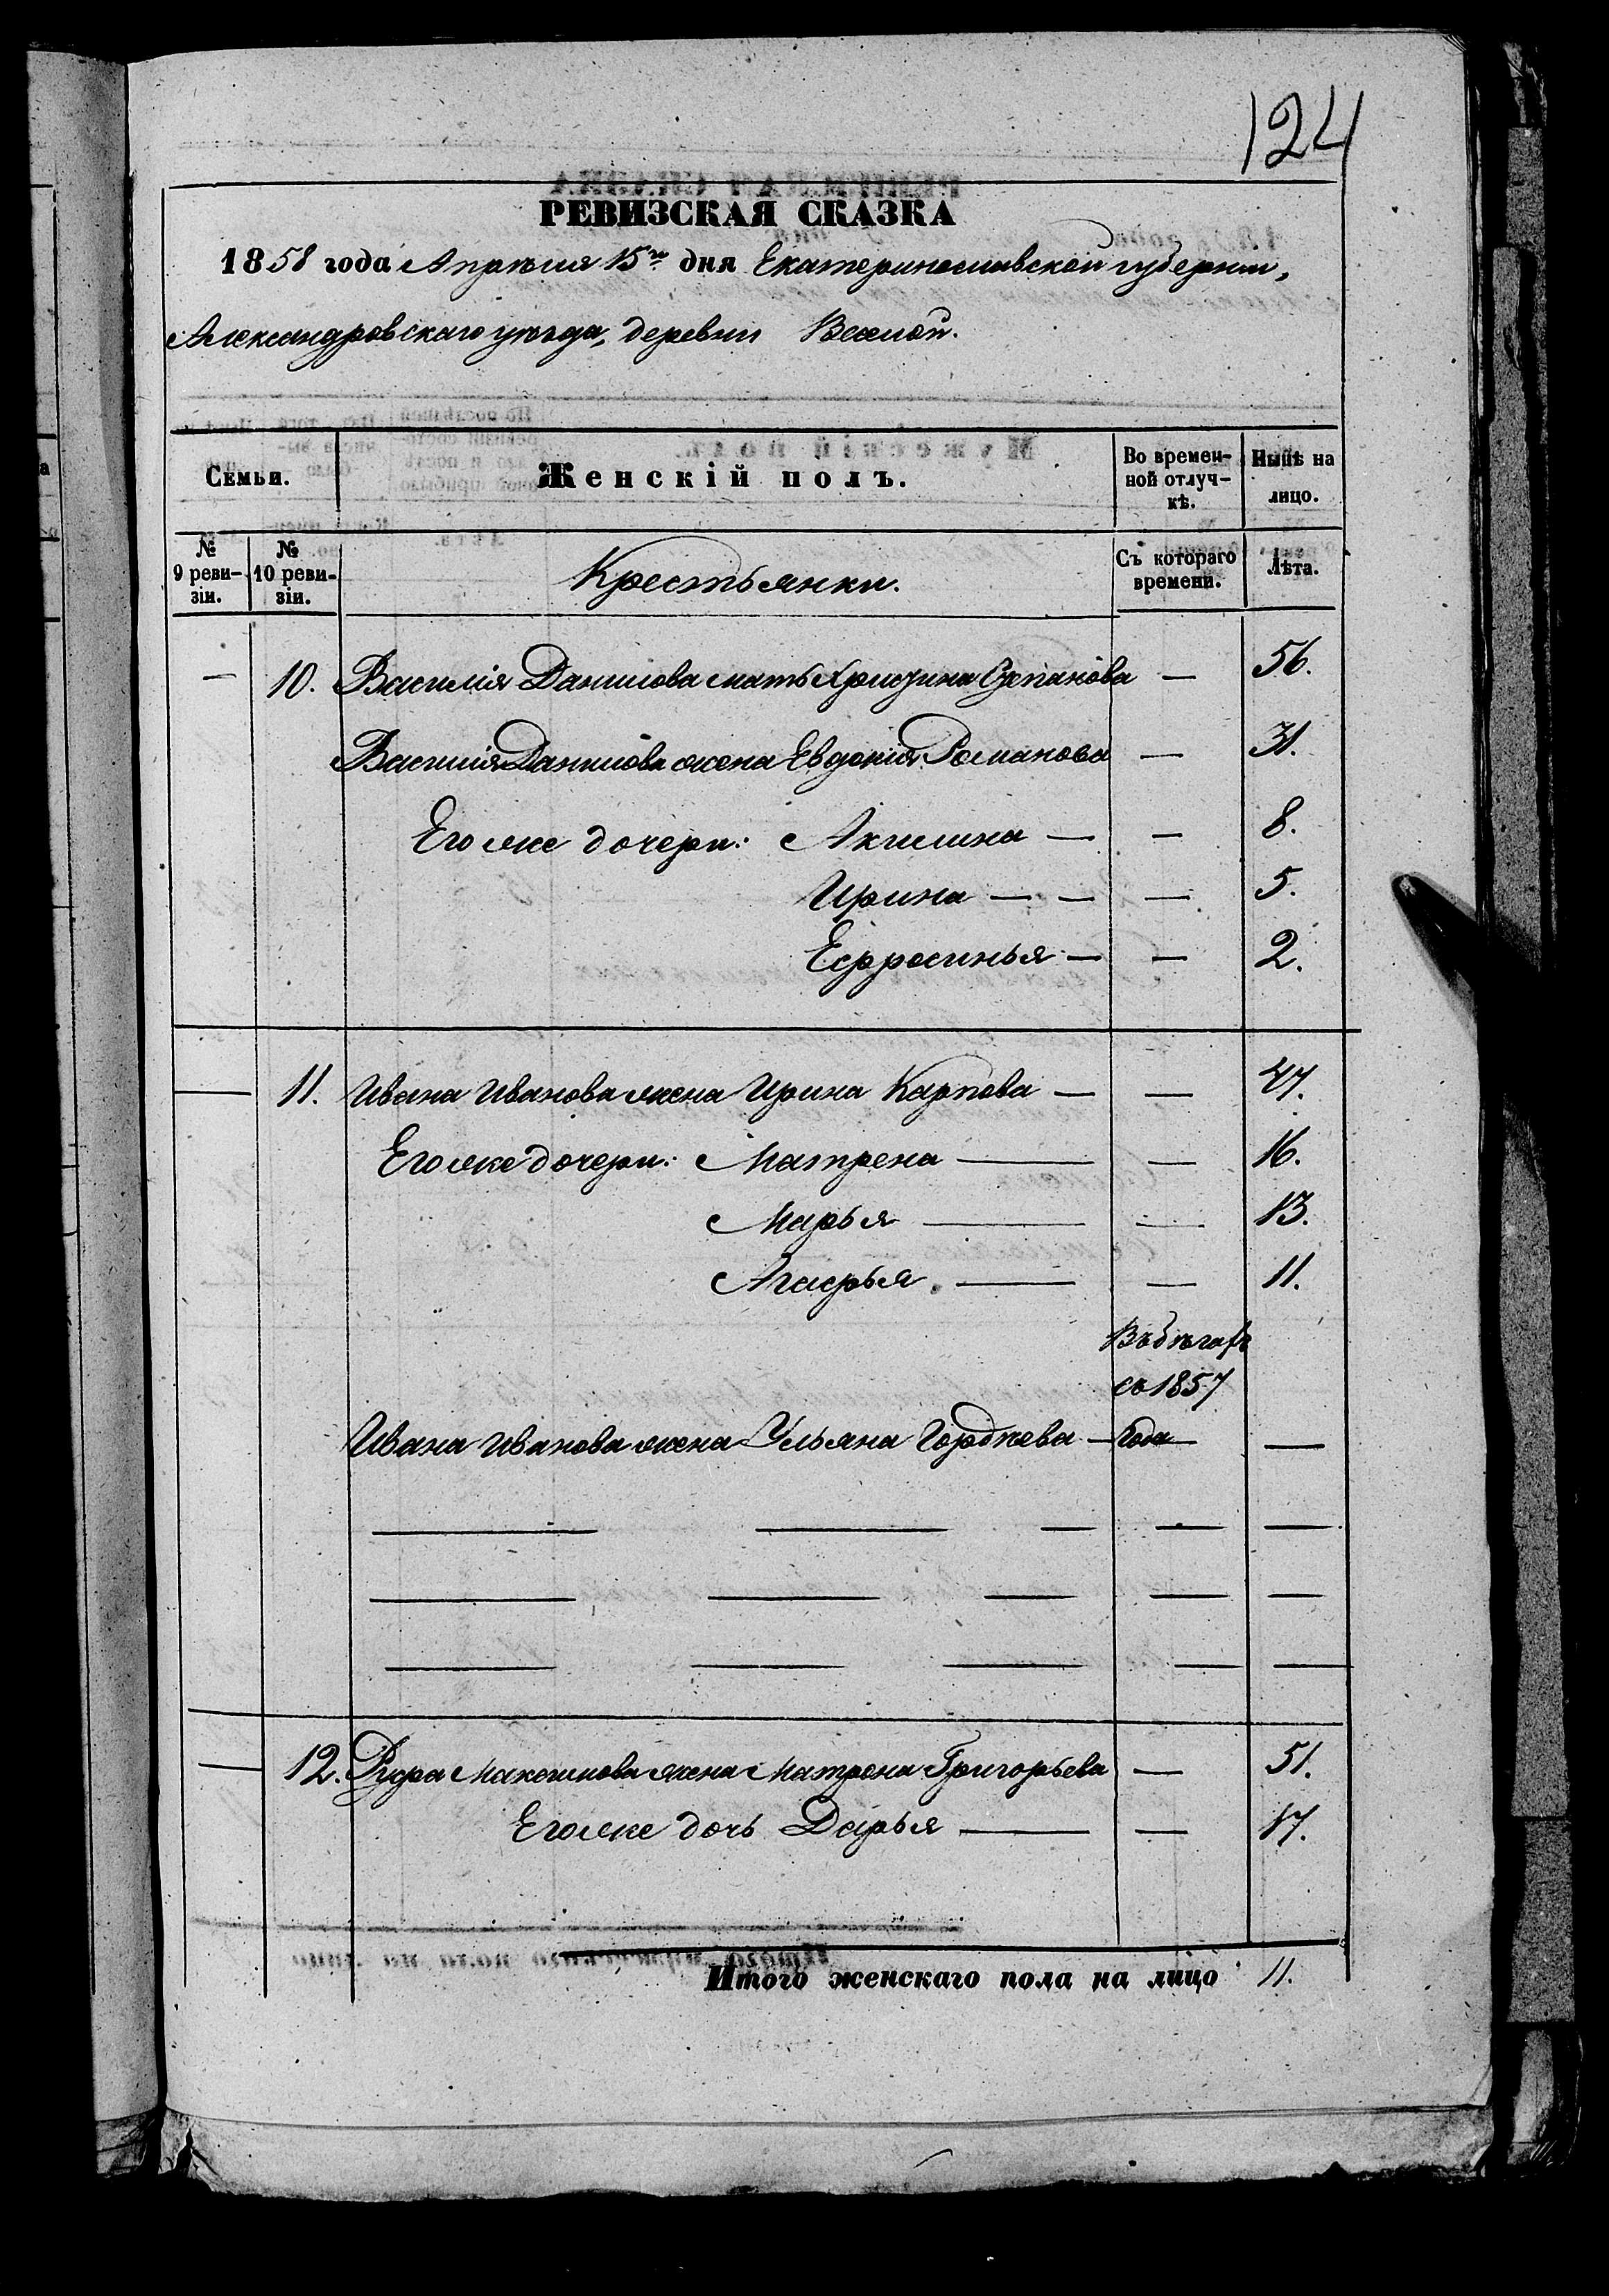 124
РЕВИЗСКАЯ СКАЗКА
1858 года Апрѣля 15го дня Екатеринославской губернии,
Александровскаго уѣзда, деревни Веселой.
Семьи.
Женскій полъ.
Во времен-
ной отлуч-
кѣ.
Нынѣ на
лицо.
№
9 реви-
зіи.
№
10 реви-
зіи.
Крестьянки.
Съ котораго
времени.
Лѣта.
— 10. Василія Данилова мать Христина Степанова — 56.
Василія Данилова жена Евдокія Романова — 31.
Его же дочери: Акилина — — 8.
Ирина — — — 5.
Ефросинья — — 2.
— 11. Ивана Иванова жена Ирина Карпова — — 47.
Его же дочери: Матрена — — 16.
Марья — — 13.
Агафья — — 11.
Въ бѣгахъ
съ 1857
Ивана Иванова жена Ульяна Гордѣева — года —
— 12. Максимова жена Матрена Григорьева — 51.
Его же дочь Дарья — — 17.
Итого женскаго пола на лицо 11.